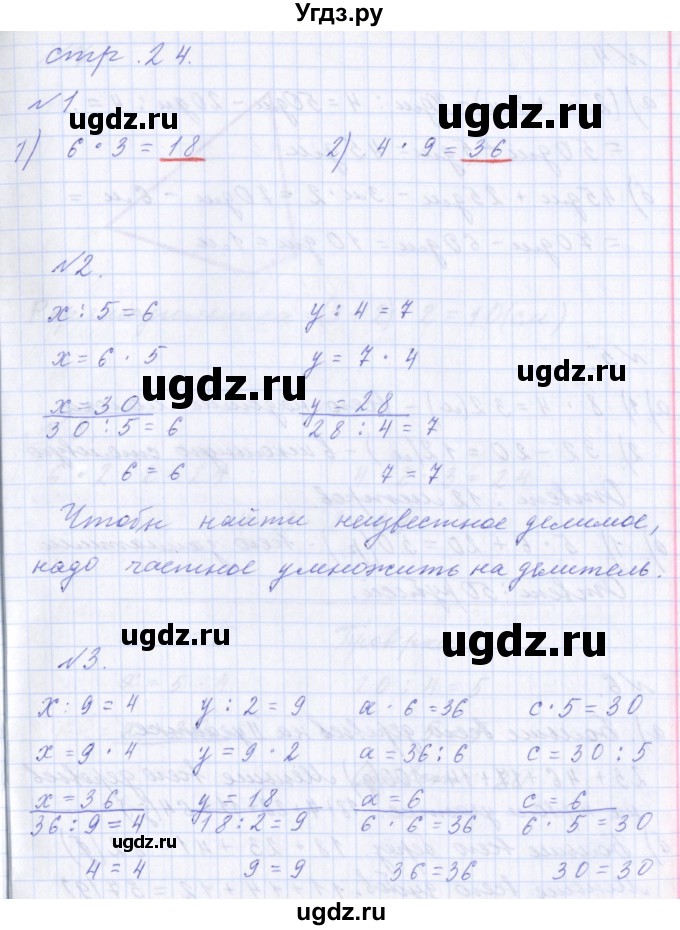 Угдз.ру
стр. 24.
№1.
ugdz.ru ugdz.ru
1) 6 · 3 = 18 2) 4 · 9 = 36
№2.
x : 5 = 6 y : 4 = 7
x = 6 · 5 y = 7 · 4
ugdz.ru ugdz.ru
x = 30 y = 28
30 : 5 = 6 28 : 4 = 7
6 = 6 7 = 7
Чтобы найти неизвестное делимое,
надо частное умножить на делитель.
ugdz.ru ugdz.ru
№3.
x : 9 = 4 y : 2 = 9 a · 6 = 36 c · 5 = 30
x = 9 · 4 y = 9 · 2 a = 36 : 6 c = 30 : 5
x = 36 y = 18 a = 6 c = 6
36 : 9 = 4 18 : 2 = 9 6 · 6 = 36 6 · 5 = 30
4 = 4 9 = 9 36 = 36 30 = 30
ugdz.ru